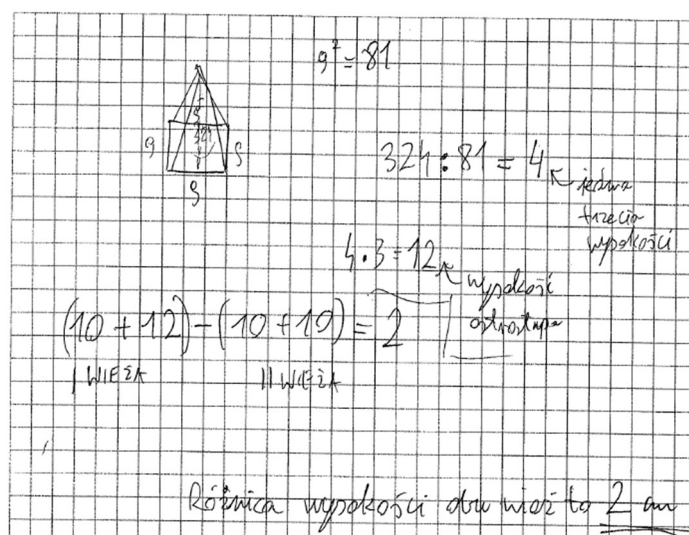 9² = 81
9
9
9
324 : 81 = 4 jedna
trzecia
wysokości
4 · 3 = 12 wysokość
ostrosłupa
(10 + 12) - (10 + 10) = 2
I WIEŻA II WIEŻA
Różnica wysokości obu wież to 2 cm